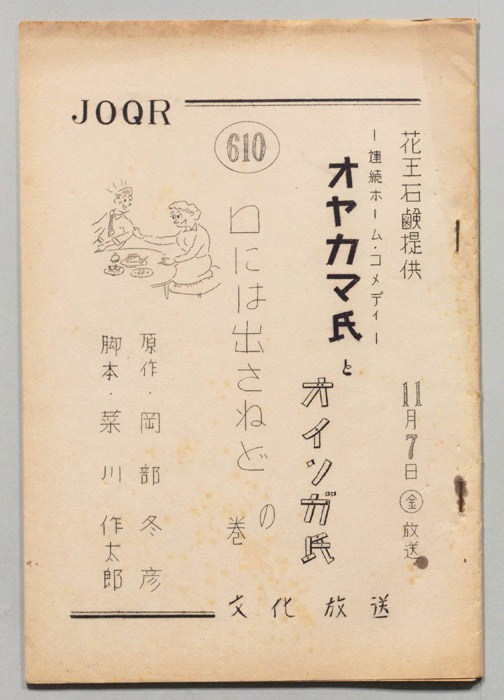 JOQR
花王石鹸提供
11月7日㊎放送
―連続ホーム・コメディ―
オヤカマ氏と
オイソガ氏
610
口には出さねどの巻
原作・岡部冬彦
脚本・菜川作太郎
文化放送